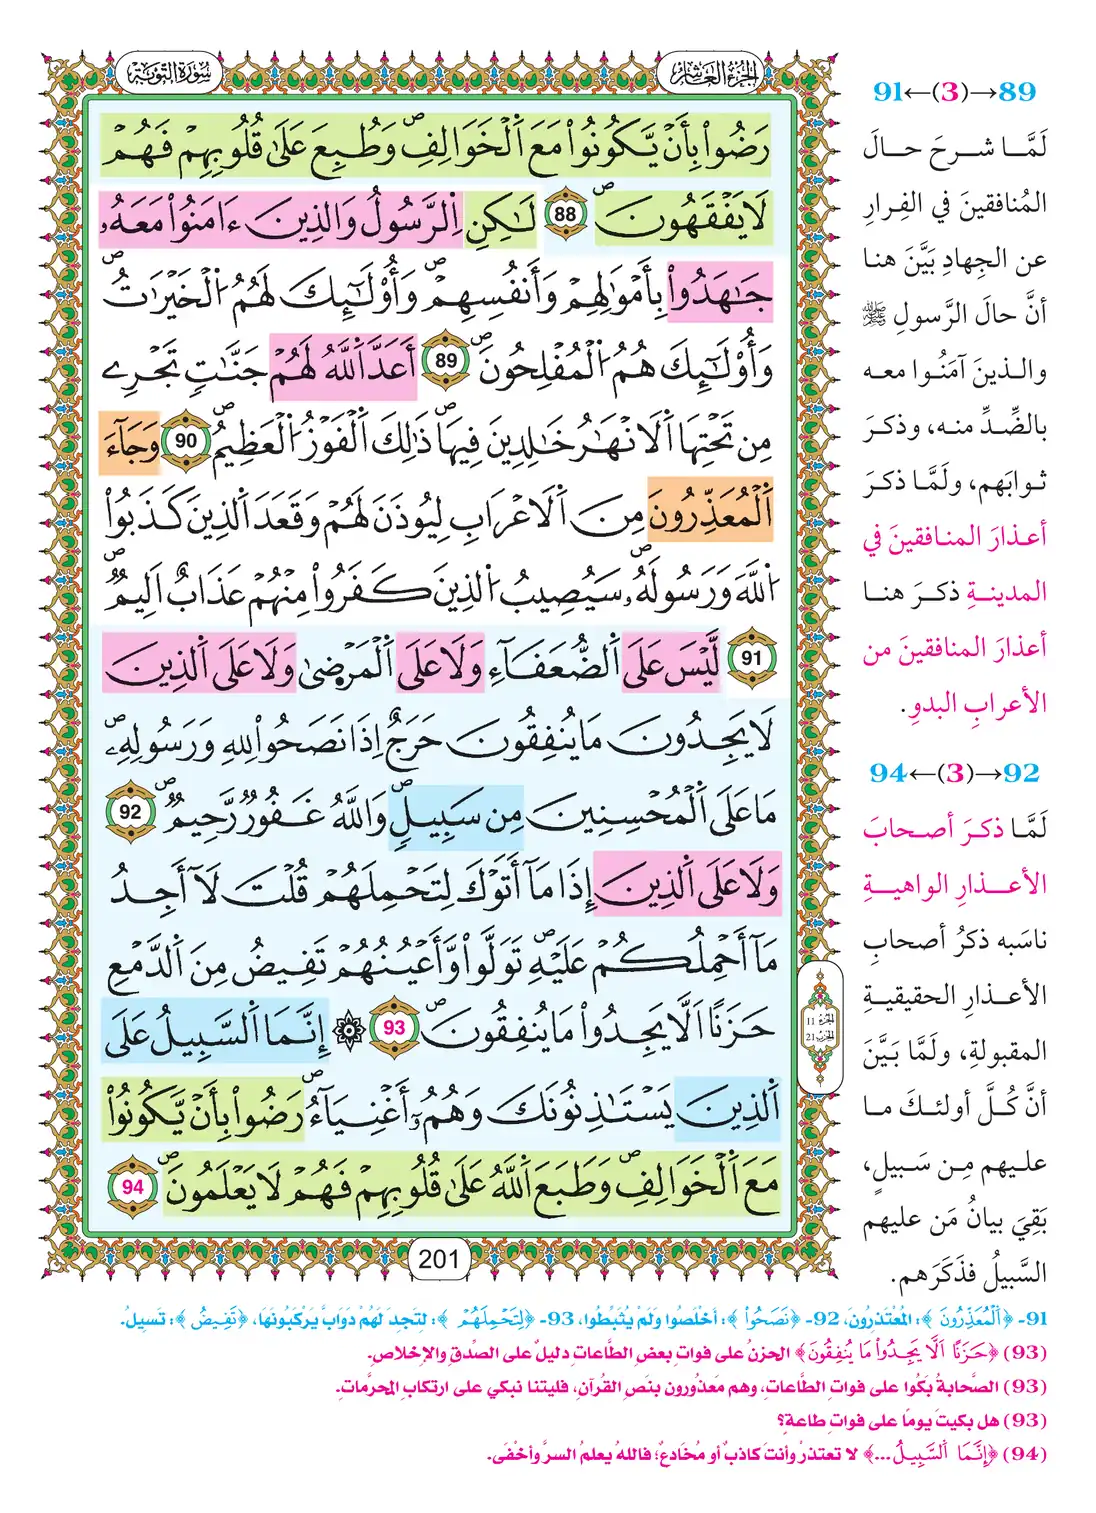 الجزء العاشر
سورة التوبة
رَضُوا۟ بِأَنْ يَّكُونُوا۟ مَعَ اَ۬لْخَوَالِفِۖ وَطُبِعَ عَلَىٰ قُلُوبِهِمْ فَهُمْ
لَا يَفْقَهُونَۖ 88 لَٰكِنِ اِ۬لرَّسُولُ وَالذِينَ ءَامَنُوا۟ مَعَهُۥ
جَٰهَدُوا۟ بِأَمْوَٰلِهِمْ وَأَنفُسِهِمْۖ وَأُو۟لَٰٓئِكَ لَهُمُ اُ۬لْخَيْرَٰتُۖ
وَأُو۟لَٰٓئِكَ هُمُ اُ۬لْمُفْلِحُونَۖ 89 أَعَدَّ اَ۬للَّهُ لَهُمْ جَنَّٰتٍ تَجْرِے
مِن تَحْتِهَا اَ۬لَانْهَٰرُ خَٰلِدِينَ فِيهَاۖ ذَٰلِكَ اَ۬لْفَوْزُ اُ۬لْعَظِيمُۖ 90 وَجَآءَ
اَ۬لْمُعَذِّرُونَ مِنَ اَ۬لَاعْرَابِ لِيُوذَنَ لَهُمْ وَقَعَدَ اَ۬لذِينَ كَذَبُوا۟
اُ۬للَّهَ وَرَسُولَهُۥۖ سَيُصِيبُ اُ۬لذِينَ كَفَرُوا۟ مِنْهُمْ عَذَابٌ اَلِيمٌۖ
91 لَّيْسَ عَلَى اَ۬لضُّعَفَآءِ وَلَا عَلَى اَ۬لْمَرْضۭيٰ وَلَا عَلَى اَ۬لذِينَ
لَا يَجِدُونَ مَا يُنفِقُونَ حَرَجٌ اِذَا نَصَحُوا۟ لِلهِ وَرَسُولِهِۦۖ
مَا عَلَى اَ۬لْمُحْسِنِينَ مِن سَبِيلٍۖ وَاللَّهُ غَفُورٌ رَّحِيمٌۖ 92
وَلَا عَلَى اَ۬لذِينَ إِذَا مَآ أَتَوْكَ لِتَحْمِلَهُمْ قُلْتَ لَآ أَجِدُ
مَآ أَحْمِلُكُمْ عَلَيْهِۖ تَوَلَّوا۟ وَّأَعْيُنُهُمْ تَفِيضُ مِنَ اَ۬لدَّمْعِ
حَزَنًا اَلَّا يَجِدُوا۟ مَا يُنفِقُونَۖ 93 ۞ إِنَّمَا اَ۬لسَّبِيلُ عَلَى
اَ۬لذِينَ يَسْتَٰذِنُونَكَ وَهُمُۥٓ أَغْنِيَآءُۖ رَضُوا۟ بِأَنْ يَّكُونُوا۟
مَعَ اَ۬لْخَوَالِفِۖ وَطَبَعَ اَ۬للَّهُ عَلَىٰ قُلُوبِهِمْ فَهُمْ لَا يَعْلَمُونَۖ 94
201
الجزء 11
الحزب 21
89→(3)←91
لَمَّا شرحَ حالَ
المُنافقينَ في الفِرارِ
عن الجِهادِ بَيَّنَ هنا
أنَّ حالَ الرَّسولِ ﷺ
والذينَ آمَنُوا معه
بالضِّدِّ منه، وذكرَ
ثوابَهم، ولَمَّا ذكرَ
أعذارَ المنافقينَ في
المدينةِ ذكرَ هنا
أعذارَ المنافقينَ من
الأعرابِ البدوِ.
92→(3)←94
لَمَّا ذكرَ أصحابَ
الأعذارِ الواهيةِ
ناسَبه ذكرُ أصحابِ
الأعذارِ الحقيقيةِ
المقبولةِ، ولَمَّا بَيَّنَ
أنَّ كُلَّ أولئكَ ما
عليهم مِن سَبيلٍ،
بَقِيَ بيانُ مَن عليهم
السَّبيلُ فذَكَرَهم.
91- ﴿اَ۬لْمُعَذِّرُونَ﴾: المُعْتَذِرُونَ، 92- ﴿نَصَحُوا۟﴾: أخْلَصُوا وَلَمْ يُثَبِّطُوا، 93- ﴿لِتَحْمِلَهُمْ﴾: لِتَجِدَ لَهُمْ دَوَابَّ يَرْكَبُونَهَا، ﴿تَفِيضُ﴾: تَسِيلُ.
(93) ﴿حَزَنًا اَلَّا يَجِدُوا۟ مَا يُنفِقُونَ﴾ الحزنُ على فواتِ بعضِ الطَّاعاتِ دليلٌ على الصِّدقِ والإخلاصِ.
(93) الصَّحابةُ بَكُوا على فواتِ الطَّاعاتِ، وهم مَعذُورون بنَصِ القُرآنِ، فليتنا نبكي على ارتكابِ المحرَّماتِ.
(93) هل بكيتَ يومًا على فواتِ طاعةٍ؟
(94) ﴿إِنَّمَا اَ۬لسَّبِيلُ...﴾ لا تعتذرْ وأنتَ كاذبٌ أو مُخَادعٌ؛ فاللهُ يعلمُ السرَّ وأخْفَى.